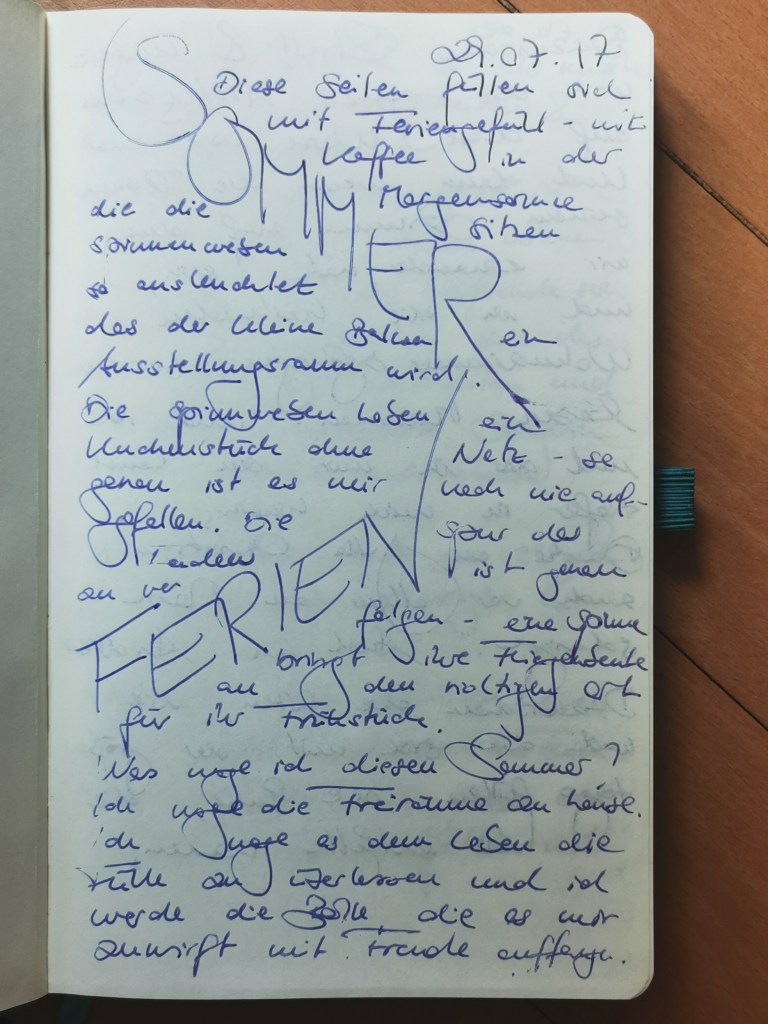 29.07.17
SOMMER
Diese Seiten füllen sich
mit Feriengefühl - mit
Kaffee in der
Morgensonne
die die sitzen
spinnenweben
so ausleuchtet
das der kleine Balkon ein
Ausstellungsraum wird.
Die spinnweben haben ein
Kuchenstück ohne Netz - so
genau ist es mir noch nie auf-
gefallen. Die Spur des
Fadens ist genau
an ver
FERIEN
folgen - eine Spinne
bringt ihre Fliegenbeute
an den richtigen ort
für ihr Frühstück.
Was mag ich diesen Sommer?
Ich mag die Freiräume
Ich es dem Leben die
Fülle an überlassen und ich
werde die Bälle, die es mir
zuwirft mit Freude auffangen.